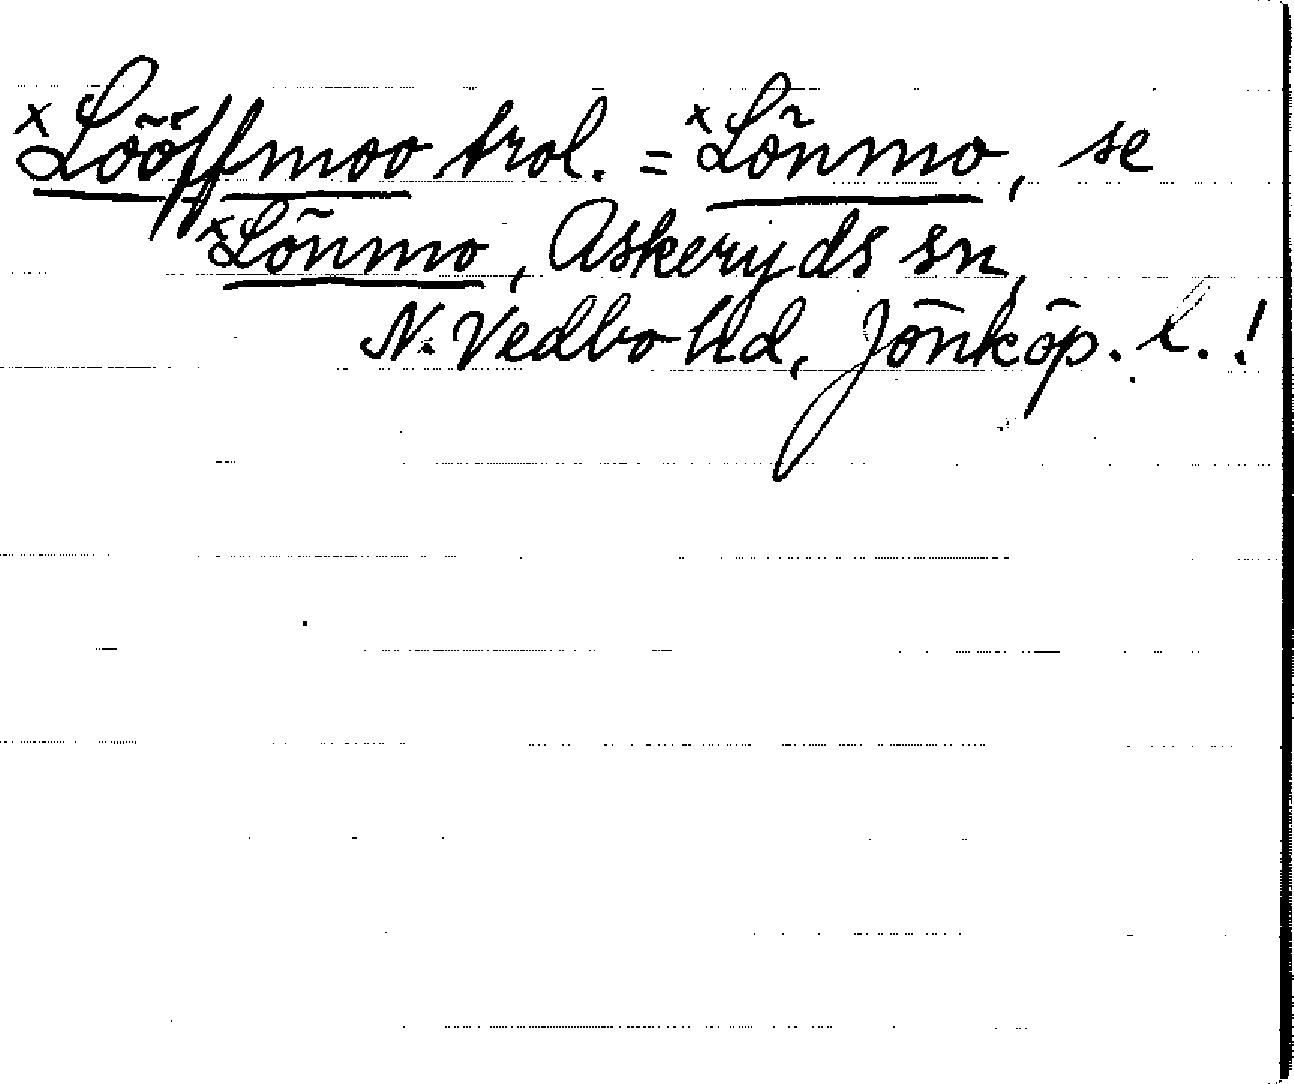 x Lööffmoo trol. = x Lönmo, se
x Lönmo, Askeryds sn,
N. Vedbo hd, Jönköp. l.!